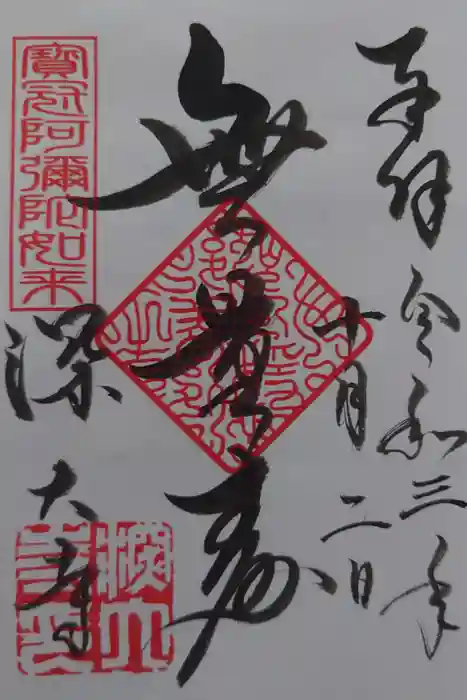 奉拝
令和三年
十月二日
無量壽
寶冠阿彌陀如来
深大寺